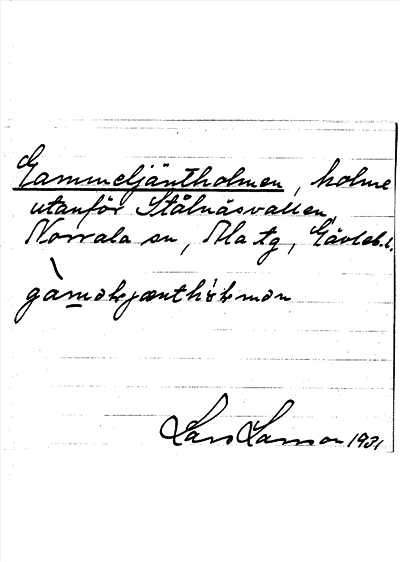 Gammeljäntholmen, holme
utanför Stålnäsvallen,
Norrala sn, Ala tg, Gävleb.l.
gàmolejænthòlmən
Lars Larsson 1931